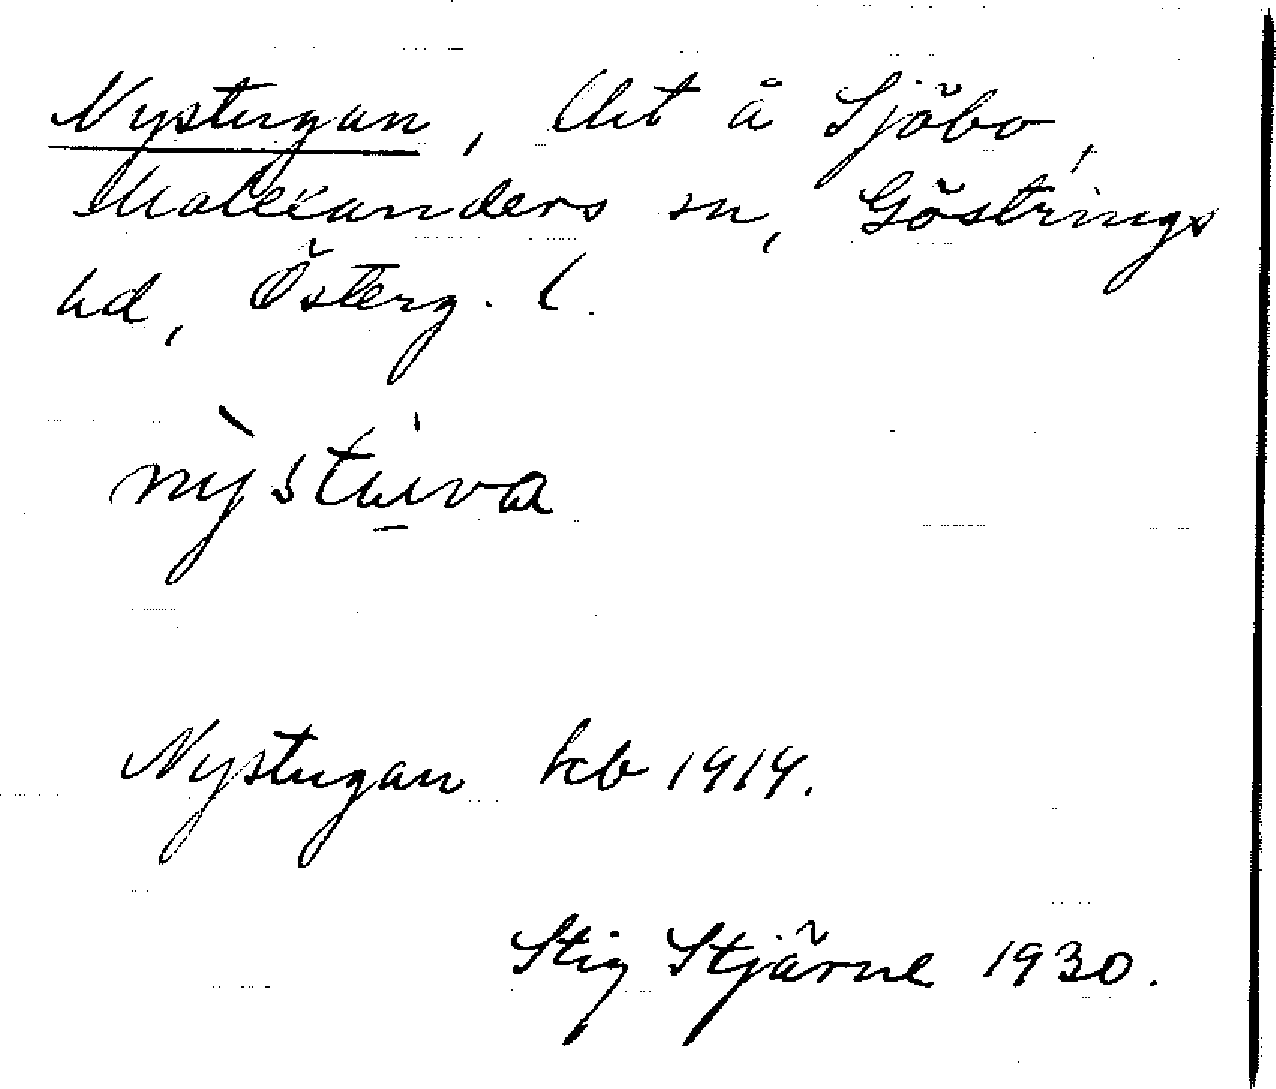 Nystugan, lht å Sjöbo,
Malexanders sn, Göstrings
hd, Österg. l.
nỳstu̱va
Nystugan kb 1919.
Stig Stjärne 1930.